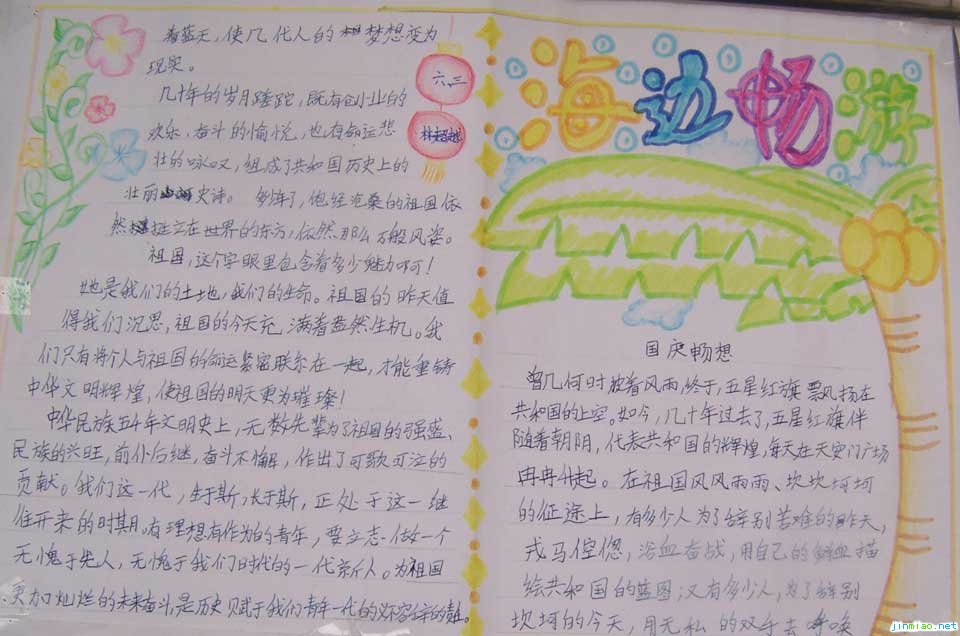 海边畅游
国庆畅想
曾几何时披着风雨,终于,五星红旗飘扬在
共和国的上空。如今,几十年过去了,五星红旗伴
随着朝阴,代表共和国的辉煌,每天在天安门广场
冉冉升起。在祖国风风雨雨、坎坎坷坷
的征途上,有多少人为了辞别苦难的昨天,
戎马倥偬,浴血奋战,用自己的鲜血描
绘共和国的蓝图;又有多少人,为了辞别
坎坷的今天,用无私的双手去呼唤
着蓝天,使几代人的梦想变为
现实。
几十年的岁月蹉跎,既有创业的
欢乐,奋斗的愉悦,也有命运悲
壮的咏叹,组成了共和国历史上的
壮丽史诗。多年了,饱经沧桑的祖国依
然挺立在世界的东方,依然那么万般风姿。
祖国,这个字眼里包含着多少魅力啊!
她是我们的土地,我们的生命。祖国的昨天值
得我们沉思,祖国的今天充满着盎然生机。我
们只有将个人与祖国的命运紧密联系在一起,才能重铸
中华文明辉煌,使祖国的明天更为璀璨!
中华民族五千年文明史上,无数先辈为了祖国的强盛、
民族的兴旺,前仆后继,奋斗不懈,作出了可歌可泣的
贡献。我们这一代,生于斯,长于斯,正处于这一继
往开来的时期,有理想有作为的青年,要立志做一个
无愧于先人,无愧于我们时代的一代新人。为祖国
更加灿烂的未来奋斗,是历史赋于我们青年一代的
六三
jinmiao.net